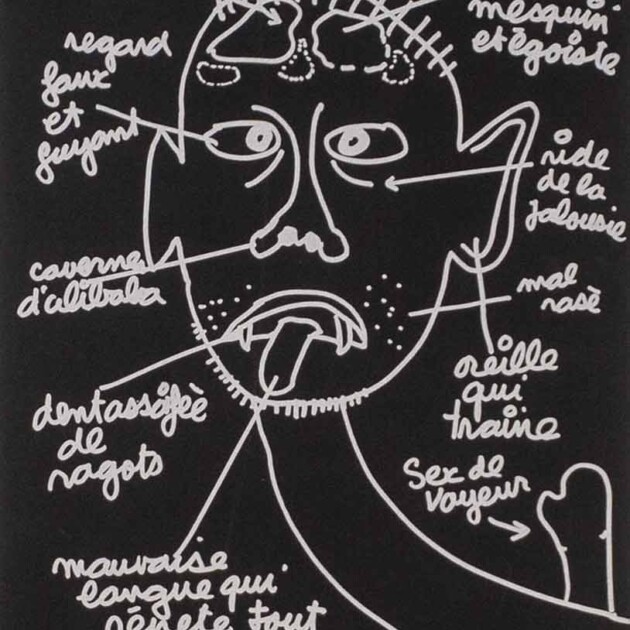 mesquin
et égoiste
regard
faux
et
fuyant
ride
de la
jalousie
caverne
d'alibaba
mal
rasè
dent assoifèè
de
ragots
oreille
qui
traine
Sex de
voyeur
mauvaise
langue qui
rèpete tout